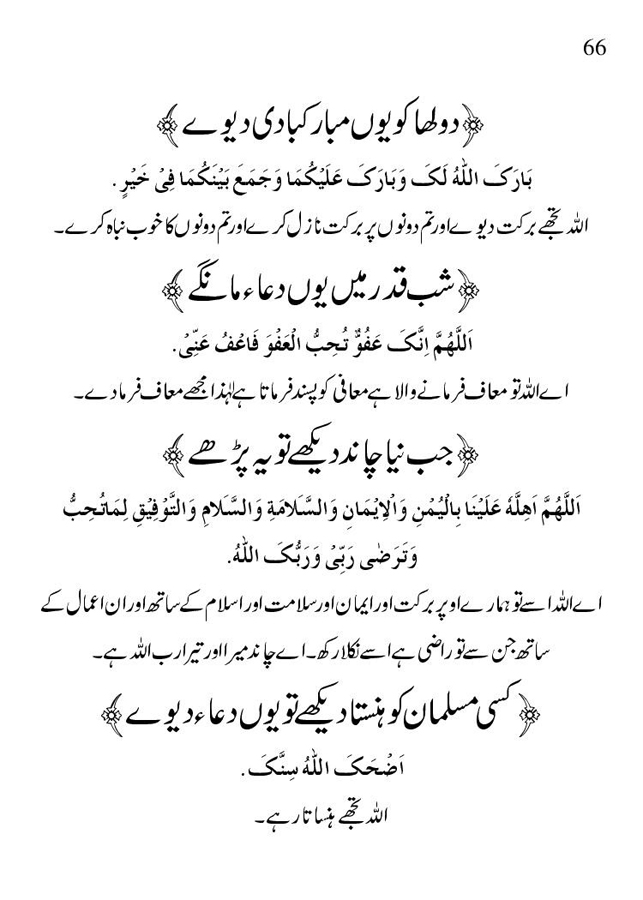 66
﴿دولھا کو یوں مبارکبادی دیوے﴾
بَارَکَ اللّٰہُ لَکَ وَبَارَکَ عَلَیْکُمَا وَجَمَعَ بَیْنَکُمَا فِیْ خَیْرٍ .
اللہ تجھے برکت دیوے اور تم دونوں پر برکت نازل کرے اور تم دونوں کا خوب نباہ کرے۔
﴿شب قدر میں یوں دعاء مانگے﴾
اَللّٰھُمَّ اِنَّکَ عَفُوٌّ تُحِبُّ الْعَفْوَ فَاعْفُ عَنِّیْ.
اے اللہ تو معاف فرمانے والا ہے معافی کو پسند فرماتا ہے لہٰذا مجھے معاف فرمادے۔
﴿جب نیا چاند دیکھے تو یہ پڑھے﴾
اَللّٰھُمَّ اَھِلَّهٗ عَلَیْنَا بِالْیُمْنِ وَالْاِیْمَانِ وَالسَّلَامَةِ وَالسَّلَامِ وَالتَّوْفِیْقِ لِمَاتُحِبُّ
وَتَرَضٰی رَبِّیْ وَرَبُّکَ اللّٰہُ.
اے اللہ اسے تو ہمارے اوپر برکت اور ایمان اور سلامت اور اسلام کے ساتھ اور ان اعمال کے
ساتھ جن سے تو راضی ہے اسے نکلا رکھ۔ اے چاند میرا اور تیرا رب اللہ ہے۔
﴿کسی مسلمان کو ہنستا دیکھے تو یوں دعاء دیوے﴾
اَضْحَکَ اللّٰہُ سِنَّکَ.
اللہ تجھے ہنساتا رہے۔